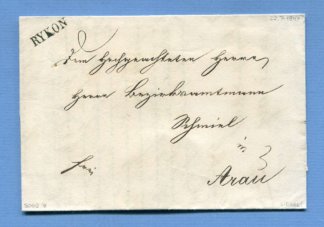 RYKON
Dem Hochgeachteten Herrn
Herrn Bezirksamtmann
Schmiel
in
Arau
frei